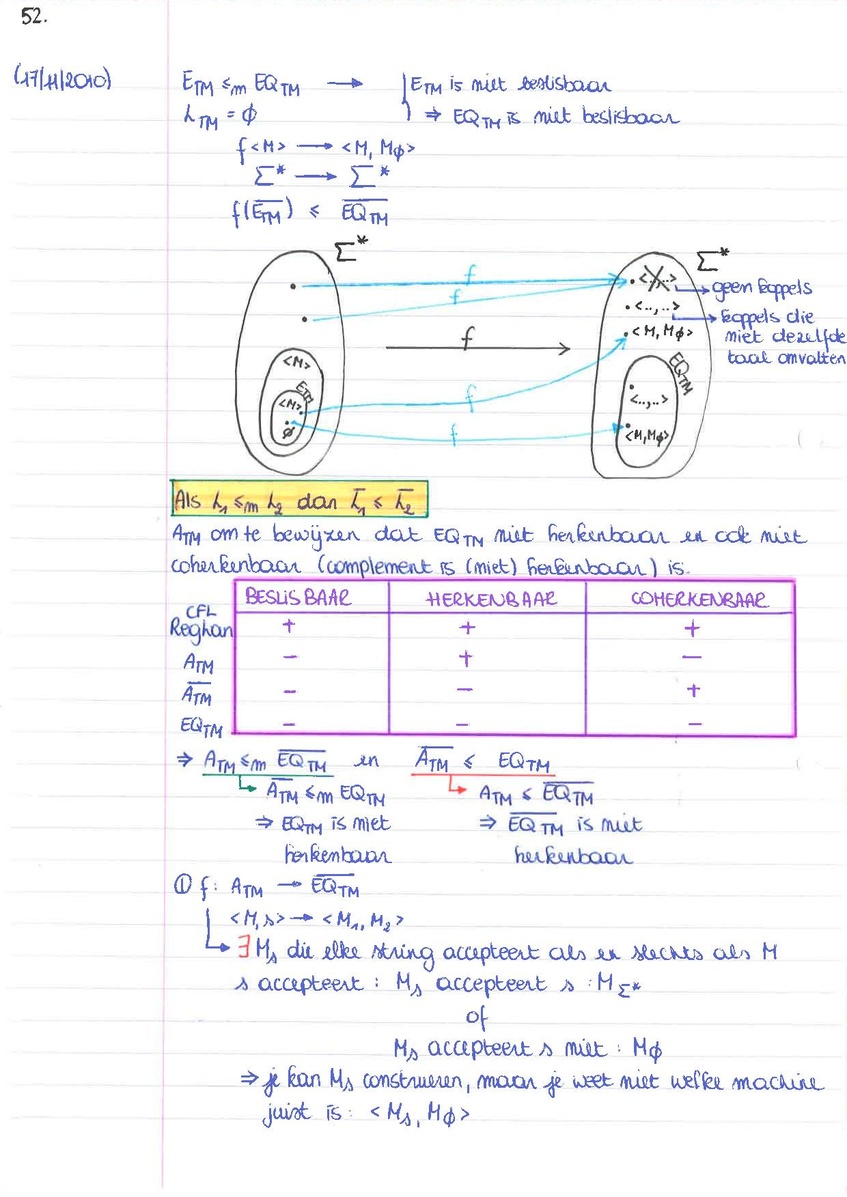 52.
(17/11/2010)
E_TM ≤m EQ_TM → | E_TM is niet beslisbaar
L_TM = ∅ ⇒ EQ_TM is niet beslisbaar
f<M> → <M, M∅>
Σ* → Σ*
f(\overline{E_TM}) ≤ \overline{EQ_TM}
Σ*
Σ*
f
f
<..,..> → geen koppels
<..,..> → koppels die
niet dezelfde
taal omvatten
<M, M∅>
f
<M>
E_TM
<M>
∅
f
f
EQ_TM
<..,..>
<M, M∅>
Als L₁ ≤m L₂ dan \overline{L₁} ≤ \overline{L₂}
A_TM om te bewijzen dat EQ_TM niet herkenbaar en ook niet
coherkenbaar (complement is (niet) herkenbaar) is.
BESLISBAAR HERKENBAAR COHERKENBAAR
CFL
Reglan + + +
A_TM − + −
\overline{A_TM} − − +
EQ_TM − − −
⇒ A_TM ≤m \overline{EQ_TM} en \overline{A_TM} ≤ EQ_TM
↳ \overline{A_TM} ≤m EQ_TM ↳ A_TM ≤ \overline{EQ_TM}
⇒ EQ_TM is niet ⇒ \overline{EQ_TM} is niet
herkenbaar herkenbaar
① f: A_TM → \overline{EQ_TM}
<M,s> → <M₁, M₂>
↳ ∃ M_s die elke string accepteert als en slechts als M
s accepteert : M_s accepteert s : M_Σ*
of
M_s accepteert s niet : M∅
⇒ je kan M_s construeren, maar je weet niet welke machine
juist is: <M_s, M∅>